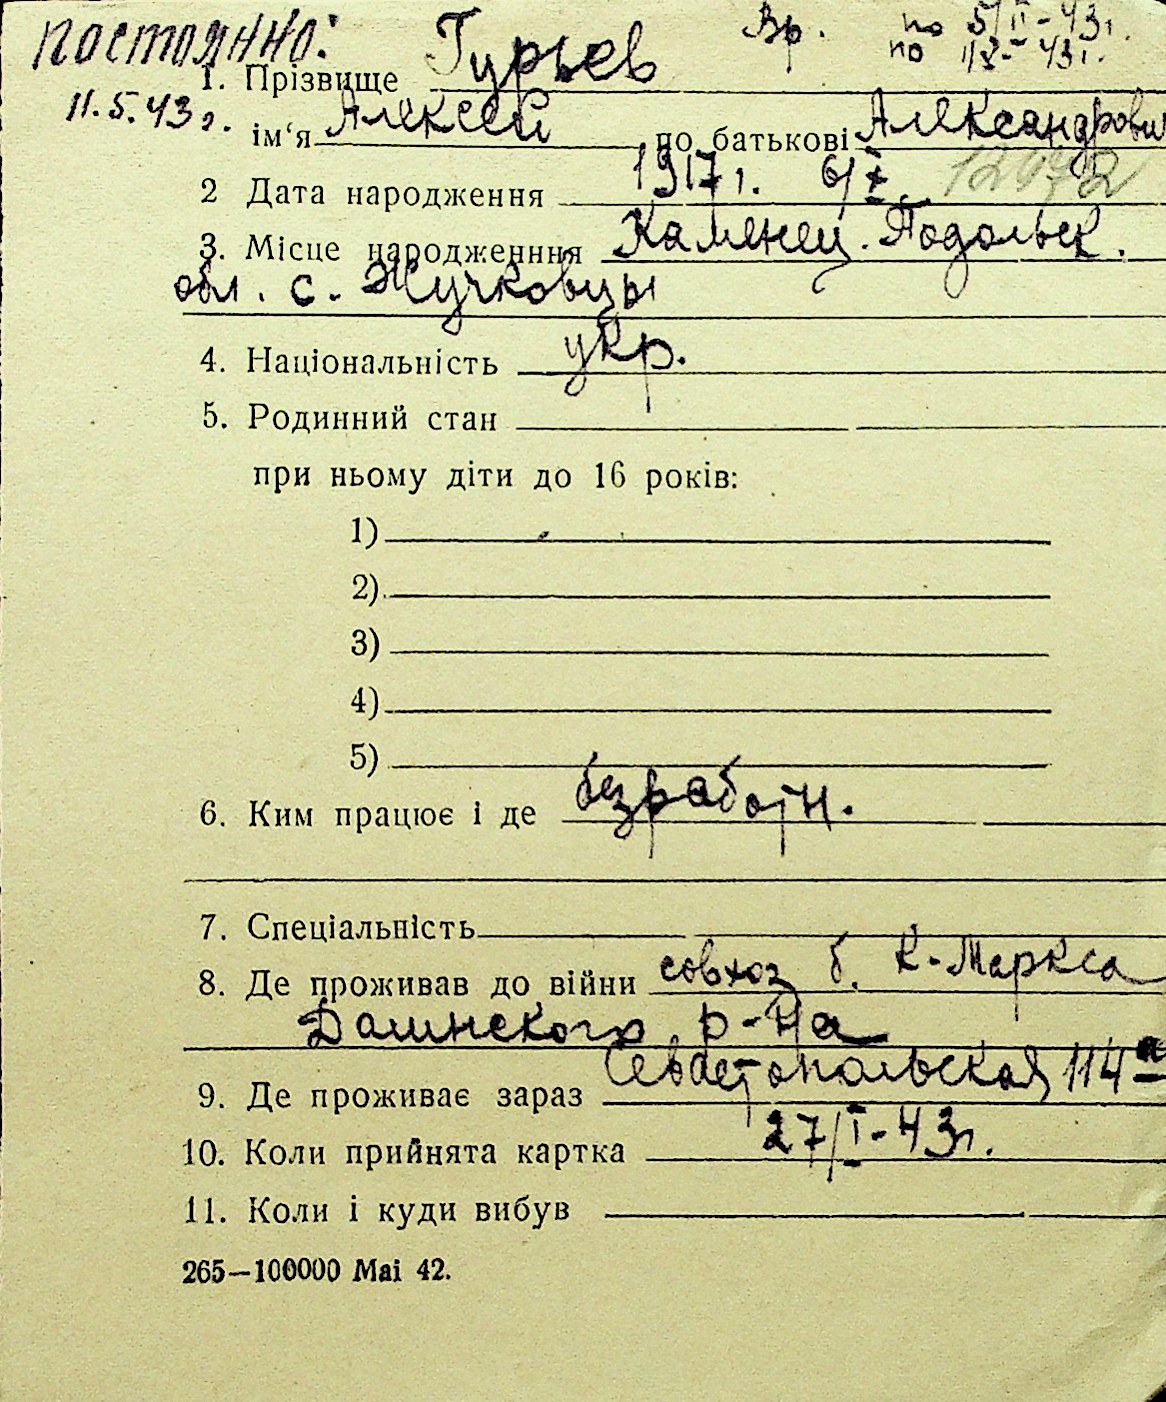 постоянно:
Вр. по 5/II-43г.
по
1. Прізвище Гурьев
11.5.43г.
ім‘я Алексей по батькові Александрович
12972
2 Дата народження 1917г. 6/X
3. Місце народженння Каменец. Подольск.
обл. с. Жучковцы
4. Національність укр.
5. Родинний стан
при ньому діти до 16 років:
1)
2)
3)
4)
5)
6. Ким працює і де безработн.
7. Спеціальність
8. Де проживав до війни совхоз б. К-Маркса
Дашнского р-на
9. Де проживає зараз Севастопольская 114а
10. Коли прийнята картка 27/I-43г.
11. Коли і куди вибув
265—100000 Mai 42.